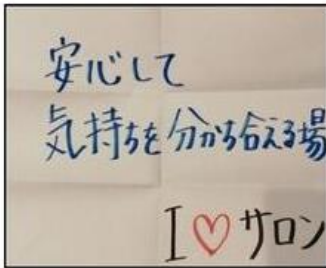 安心して
気持ちを分かち合える場
I♡サロン